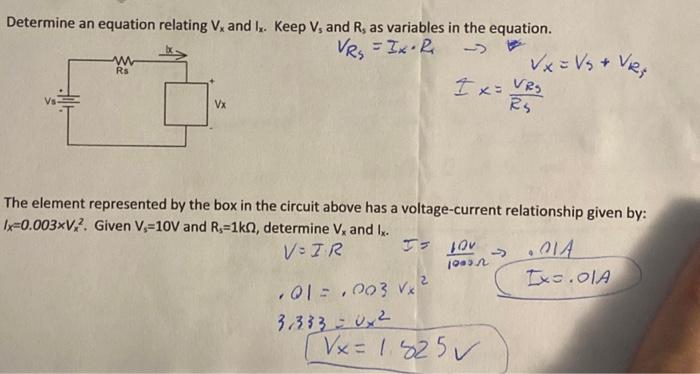 Determine an equation relating Vx and Ix. Keep Vs and Rs as variables in the equation.
VRs = Ix · Rs →
Vx = Vs + VRs
Ix
Rs
Ix = VRs / Rs
Vs
+
Vx
The element represented by the box in the circuit above has a voltage-current relationship given by:
Ix=0.003×Vx². Given Vs=10V and Rs=1kΩ, determine Vx and Ix.
V = I·R I = 10V / 1000Ω → .01A
Ix = .01A
.01 = .003 Vx²
3.333 = Vx²
Vx = 1.825V